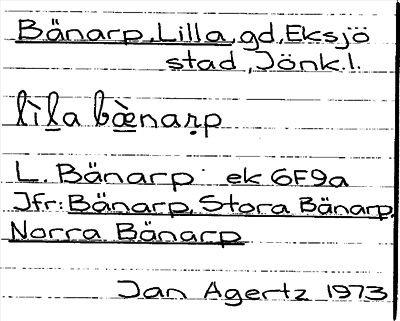 Bänarp, Lilla, gd, Eksjö
stad, Jönk.l.
lìl̲a bæ̲̀naṛp
L. Bänarp ek 6F9a
Jfr: Bänarp, Stora Bänarp,
Norra Bänarp
Jan Agertz 1973